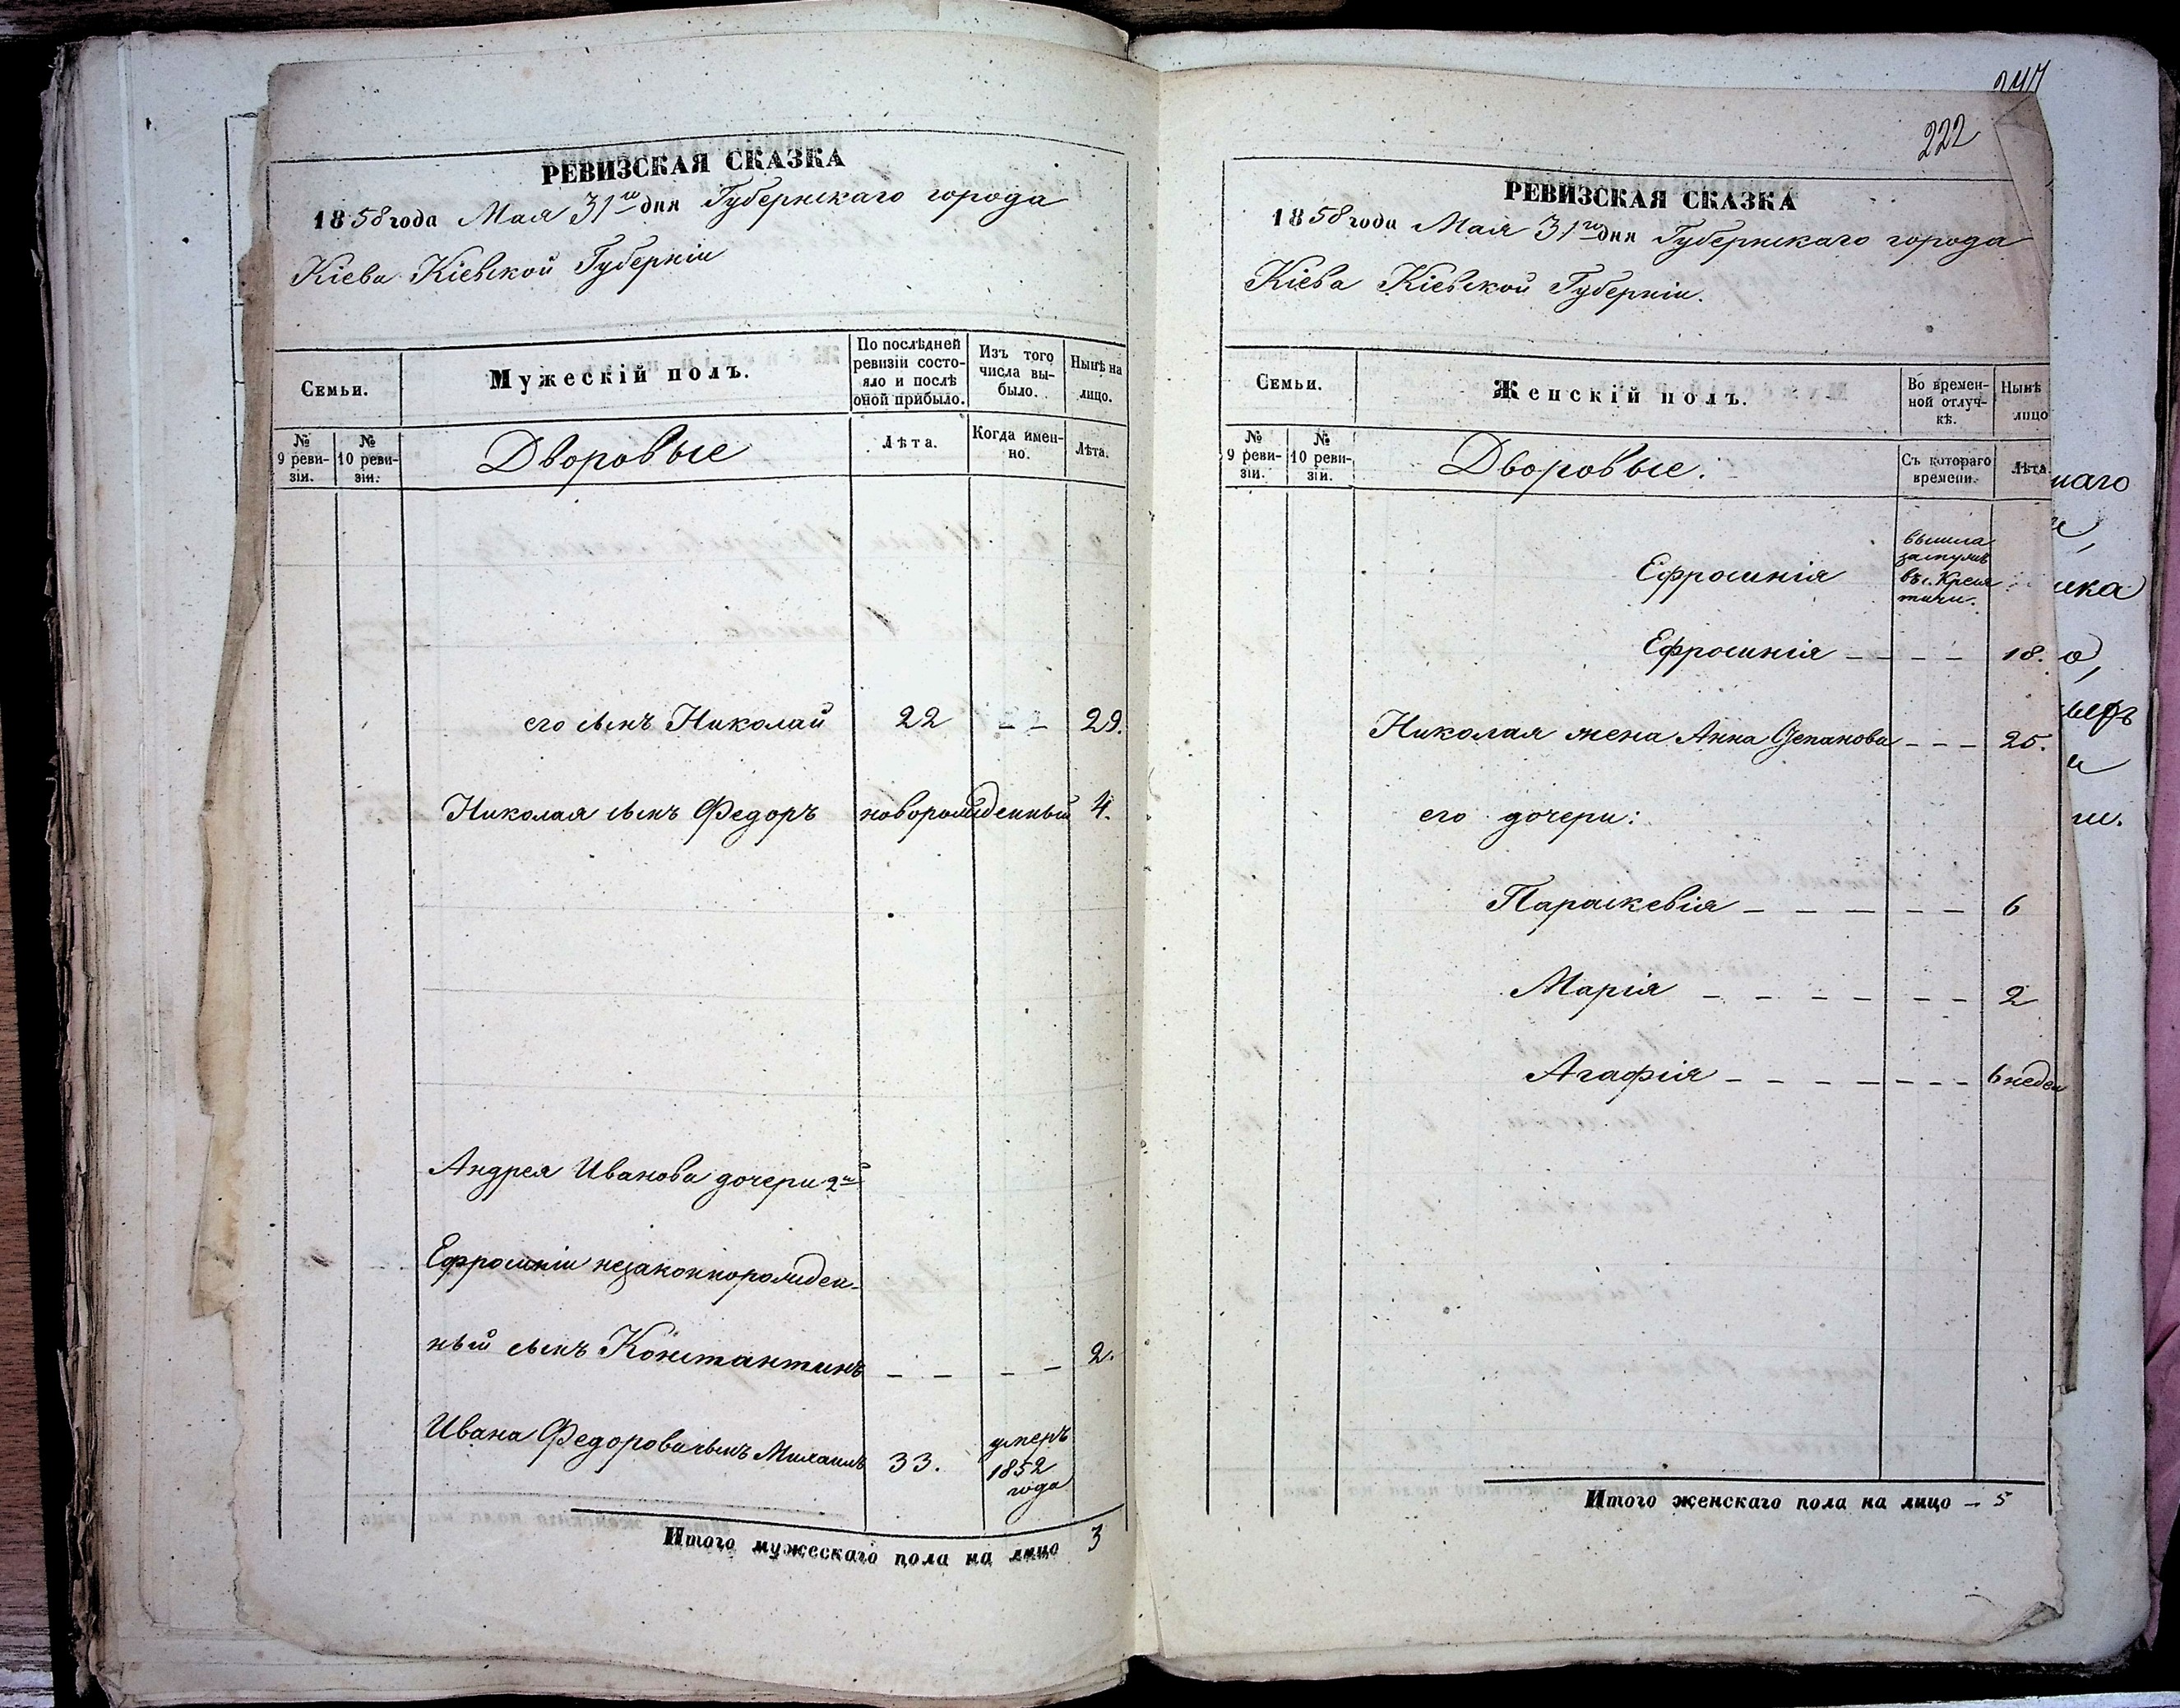 РЕВИЗСКАЯ СКАЗКА
1858 года Мая 31го дня Губернскаго города
Кіева Кіевской Губерніи
Семьи.
Мужескій полъ.
По послѣдней ревизіи состо-
яло и послѣ
оной прибыло.
Изъ того
числа вы-
было.
Нынѣ на
лицо.
№
9 реви-
зіи.
№
10 реви-
зіи.
Дворовые
Лѣта.
Когда имен-
но.
Лѣта.
его сынъ Николай 22 – – 29.
Николая сынъ Федоръ новорожденный 4.
Андрея Иванова дочери 2й
Ефросиніи незаконнорожден-
ный сынъ Константинъ – – – – 2.
Ивана Федорова сынъ Михаилъ 33. умеръ
1852
года
Итого мужескаго пола на лицо 3
222
РЕВИЗСКАЯ СКАЗКА
1858 года Мая 31го дня Губернскаго города
Кіева Кіевской Губерніи.
Семьи.
Женскій полъ.
Во времен-
ной отлуч-
кѣ.
Нынѣ
лицо
№
9 реви-
зіи.
№
10 реви-
зіи.
Дворовые.
Съ котораго
времени.
Лѣта.
Ефросинія вышла
замужъ
въ с.
Ефросинія – – – – 18.
Николая жена Анна Степанова – – – 25.
его дочери:
Параскевія – – – – – – 6
Марія – – – – – – 2
Агафія – – – – – – – – 6 недел
Итого женскаго пола на лицо – 5